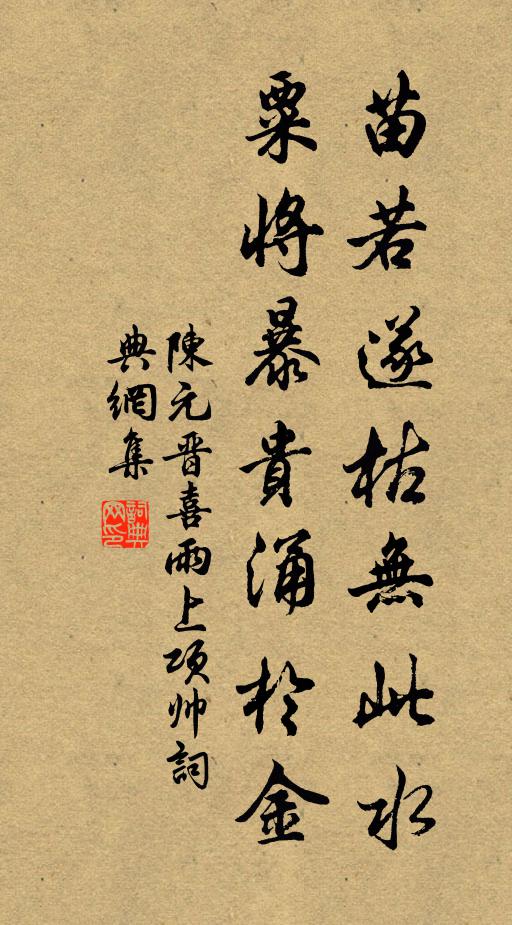 苗若遂枯無此水
粟將暴貴涌於金
陳元晋喜雨上项帅詞
典網集
詞典網印